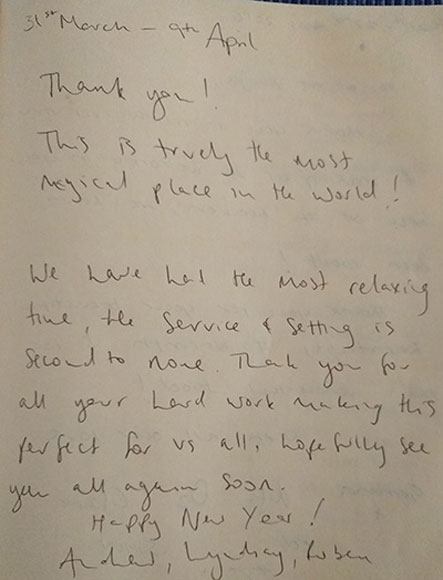 31st March - 9th April
Thank you!
This is truely the most
magical place in the world!
We have had the most relaxing
time, the service & setting is
second to none. Thank you for
all your hard work making this
perfect for us all, hopefully see
you all again soon.
Happy New Year!
Andrew, Lyndsay, Ruben